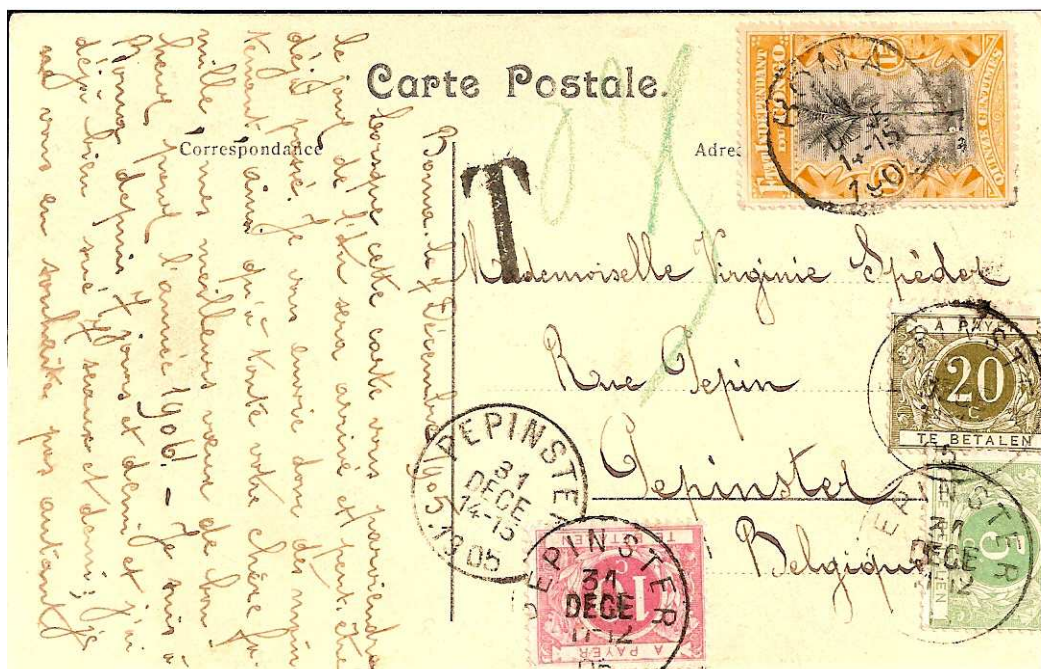 Carte Postale.
Correspondance
Adres
T
ETAT INDEPENDANT
DU CONGO
QUINZE CENTIMES
15
BOMA
14-15
190
Mademoiselle Virginie Spédot
Rue Pepin
Pepinster
Belgique
A PAYER
20
TE BETALEN
PEPINSTER
31
DECE
14-15
1905
PEPINSTER
31
DECE
A PAYER
PEPINSTER
31
DECE
5
Boma, le 7 Décembre 1905.
Lorsque cette carte vous parviendra
le jour de l'An sera arrivé et peut-être
déjà passé. Je vous envoie donc dès main-
tenant ainsi qu'à toute votre chère fa-
mille mes meilleurs vœux de bon-
heur pour l'année 1906! — Je suis à
Boma depuis 7 jours et demi et j'ai
déjà bien sué 7 seaux et demi; je
ne vous en souhaite pas autant